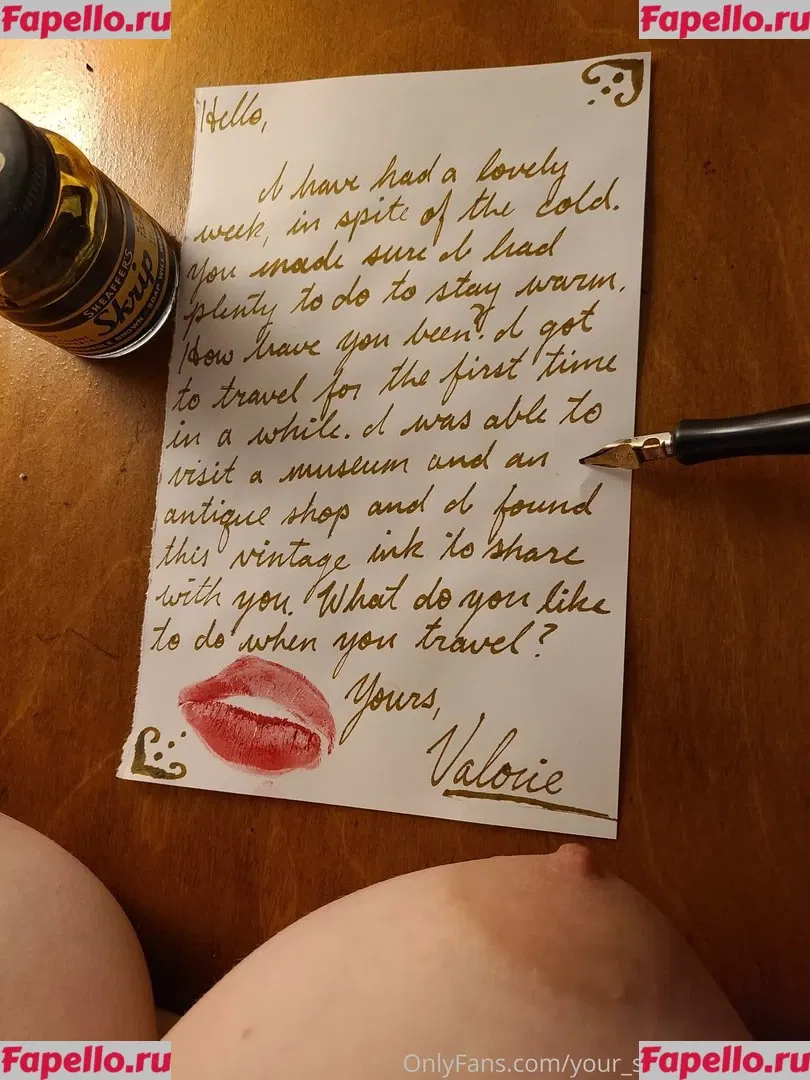 Fapello.ru
Fapello.ru
Hello,
I have had a lovely
week, in spite of the cold.
You made sure I had
plenty to do to stay warm.
How have you been? I got
to travel for the first time
in a while. I was able to
visit a museum and an
antique shop and I found
this vintage ink to share
with you. What do you like
to do when you travel?
Yours,
Valorie
SHEAFFER'S
Skrip
BROWN
Fapello.ru
OnlyFans.com/your_s
Fapello.ru